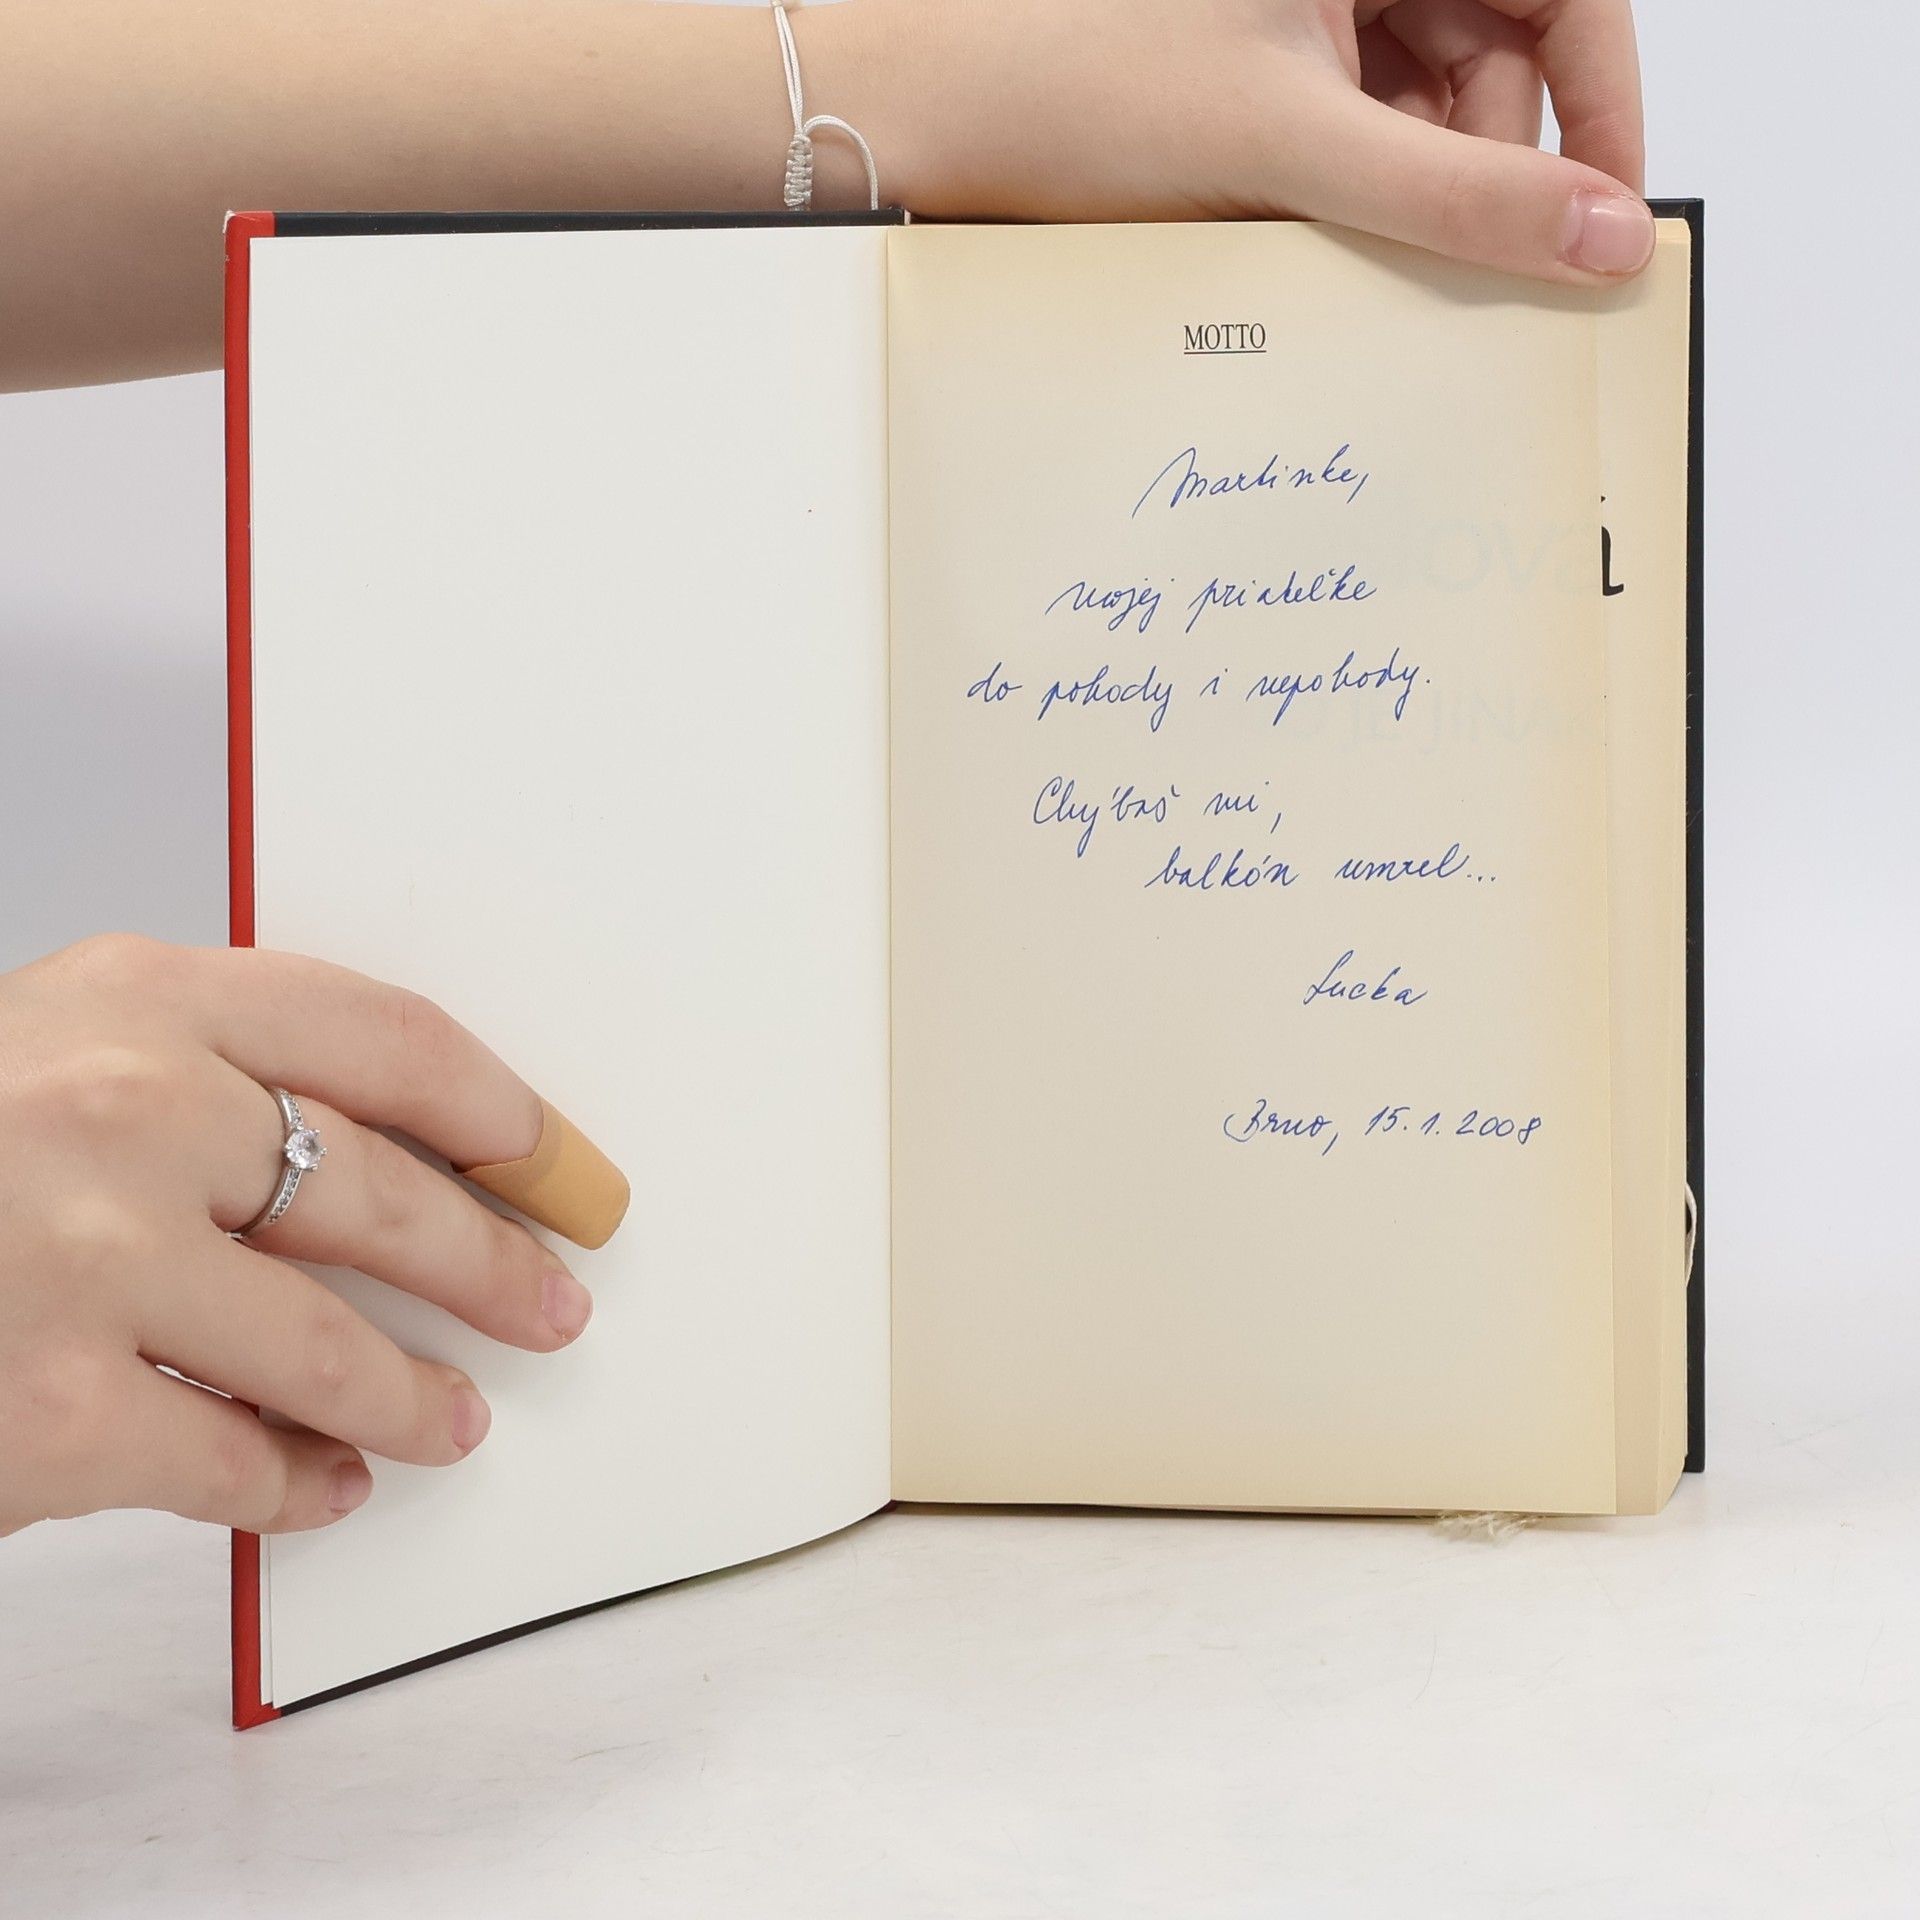 MOTTO
Martinke,
mojej priateľke
do pohody i nepohody.
Chýbaš mi,
balkón umrel...
Lucka
Brno, 15. 1. 2008